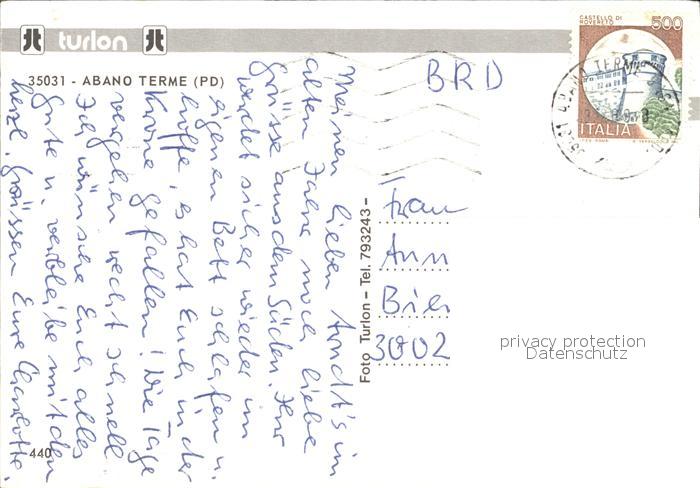 turlon
35031 - ABANO TERME (PD)
BRD
CASTELLO DI
ROVERETO
500
ITALIA
Meinen lieben Arndt's im
alten Jahr noch liebe
Grüsse aus dem Süden. Ihr
werdet sicher wieder im
eigenen Bett schlafen u.
hoffe, es hat Euch in der
Krone gefallen! Die Tage
vergehen recht schnell
Ich wünsche Euch alles
Gute u. verbleibe mit den
herzl. Grüssen Eure Charlotte.
Foto Turlon - Tel. 793243 -
Frau
Ann
Bier
3002
privacy protection
Datenschutz
440